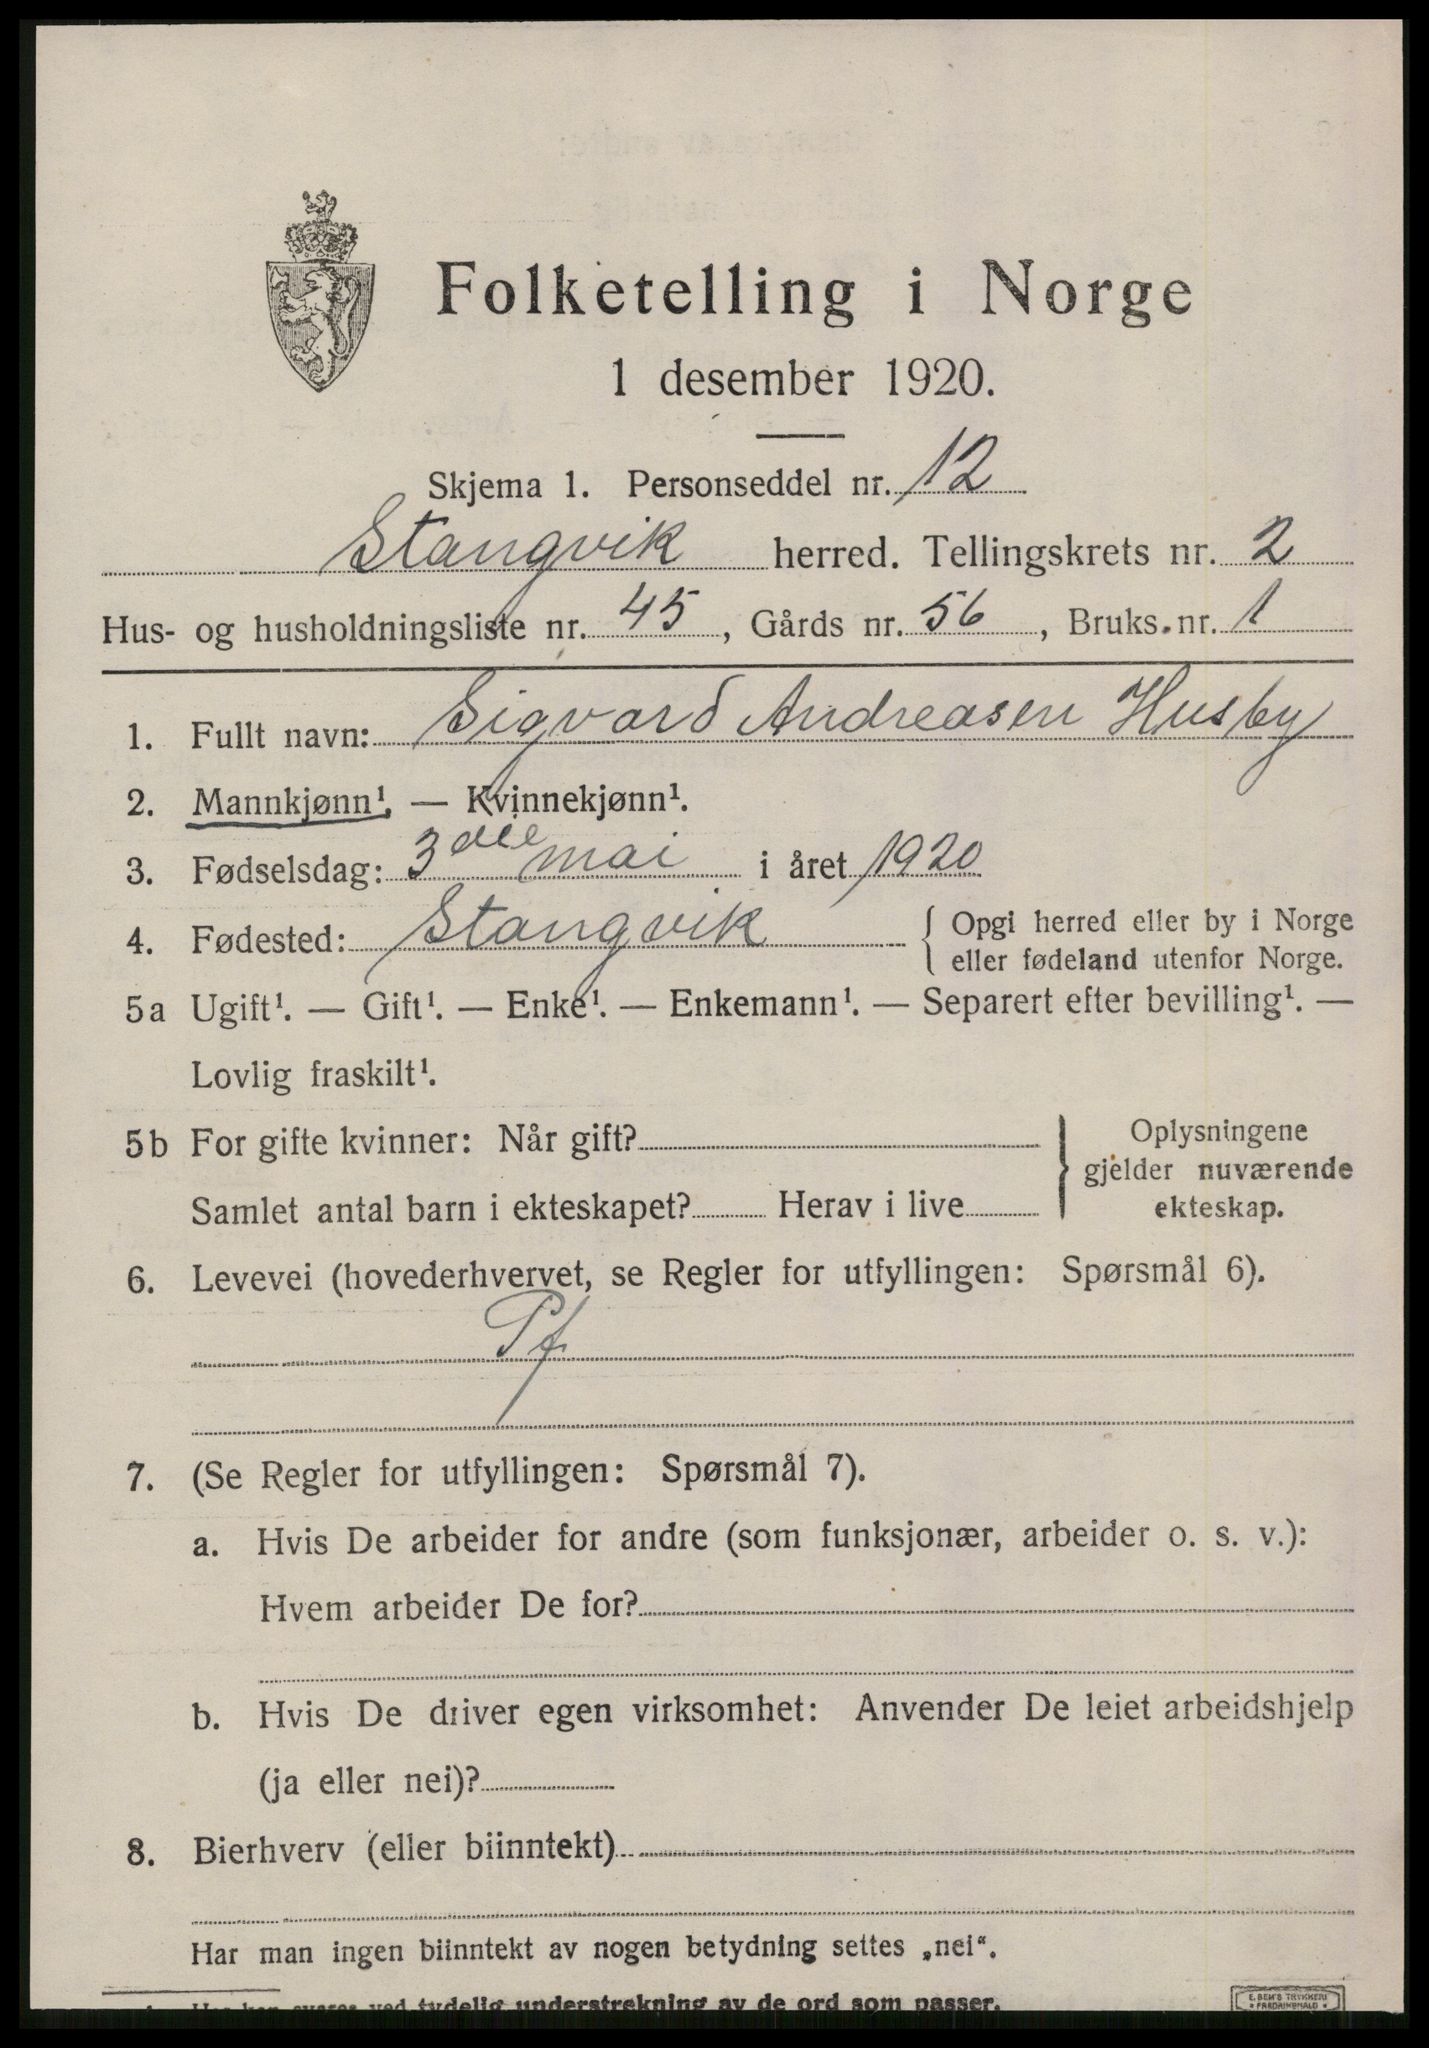 Folketelling i Norge
1 desember 1920.
Skjema 1. Personseddel nr. 12
Stangvik herred. Tellingskrets nr. 2
Hus- og husholdningsliste nr. 45, Gårds nr. 56, Bruks.nr. 1
1. Fullt navn: Sigvard Andreasen Husby
2. Mannkjønn¹. — Kvinnekjønn¹.
3. Fødselsdag: 3die mai i året 1920
4. Fødested: Stangvik { Opgi herred eller by i Norge
eller fødeland utenfor Norge.
5a Ugift¹. — Gift¹. — Enke¹. — Enkemann¹. — Separert efter bevilling¹. —
Lovlig fraskilt¹.
5b For gifte kvinner: Når gift? } Oplysningene
gjelder nuværende
Samlet antal barn i ekteskapet? Herav i live ekteskap.
6. Levevei (hovederhvervet, se Regler for utfyllingen: Spørsmål 6).
Pf
7. (Se Regler for utfyllingen: Spørsmål 7).
a. Hvis De arbeider for andre (som funksjonær, arbeider o. s. v.):
Hvem arbeider De for?
b. Hvis De driver egen virksomhet: Anvender De leiet arbeidshjelp
(ja eller nei)?
8. Bierhverv (eller biinntekt)
Har man ingen biinntekt av nogen betydning settes „nei“.
Her kan svares ved tydelig understrekning av de ord som passer.
E. SEM'S TRYKKERI
FREDRIKSHALD